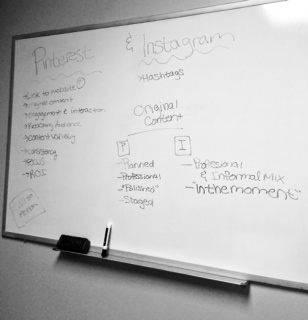 Pinterest & Instagram
→Link to website
→Original content
→Engagement & interaction
→Audience
→Content variety
→Consistency
→Focus
→ROI
→Hashtags
Original
Content
P
-Planned
-Professional
-"Polished"
-Staged
I
-Professional
& Informal Mix
-"In the moment"